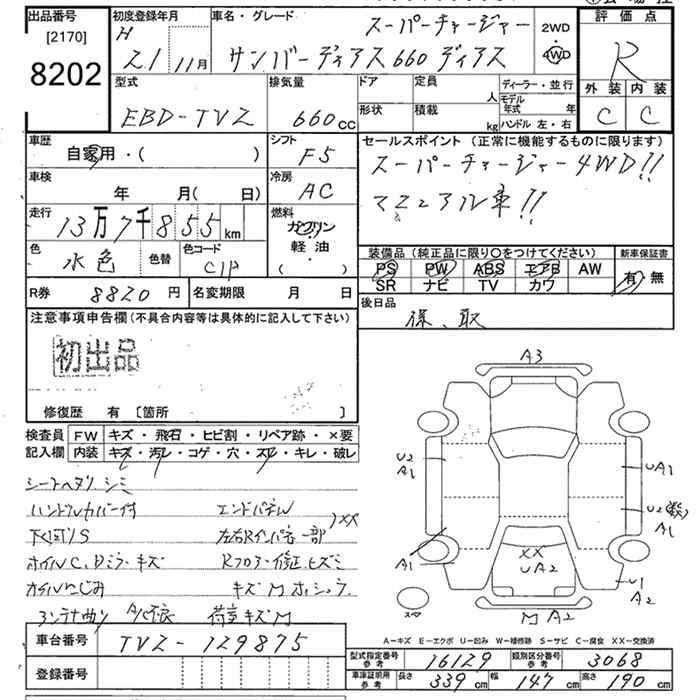 出品番号 初度登録年月 車名・グレード 評価点
[2170] H スーパーチャージャー 2WD
8202 21 11月 サンバーディアス660 ディアス 4WD R
型式 排気量 ドア 定員 人 ディーラー・並行 外装 内装
EBD-TV2 660cc 形状 積載 kg モデル年式 年 C C
ハンドル 左・右
車歴 シフト セールスポイント (正常に機能するものに限ります)
自家用・( ) F5 スーパーチャージャー4WD!!
車検 冷房 マニュアル車!!
年 月( 日) AC
走行 燃料
13万7千855km ガソリン
色 色替 色コード 軽・油
水色 C1P ( )
装備品 (純正品に限り○をつけてください) 新車保証書
PS PW ABS エアB AW 有・無
SR ナビ TV カワ
R券 8820円 名変期限 月 日 後日品
注意事項申告欄(不具合内容等は具体的に記入して下さい) 保、取
初出品
修復歴 有 [箇所 ]
検査員 FW キズ・飛石・ヒビ割・リペア跡・×要
記入欄 内装 キズ・汚レ・コゲ・穴・スレ・キレ・破レ
シートヘタリ シミ
ハンドルカバー付 エンドパネル
下回りS 左右Rインパネ一部 XX
ホイルC、Dミラーキズ Rフロアー修正、ヒズミ
オイルにじみ キズM
アンテナ曲り 荷室キズM
A3
U2 A1
UA1
U2
A1
A1
XX
UA2
U1
A2
スペア
MA2
A-キズ E-エクボ U-凹み W-補修跡 S-サビ C-腐食 XX-交換済
車台番号 TV2-129875
登録番号
型式指定番号 参考 16129 類別区分番号 参考 3068
車庫証明用 参考 長さ 339cm 幅 147cm 高さ 190cm